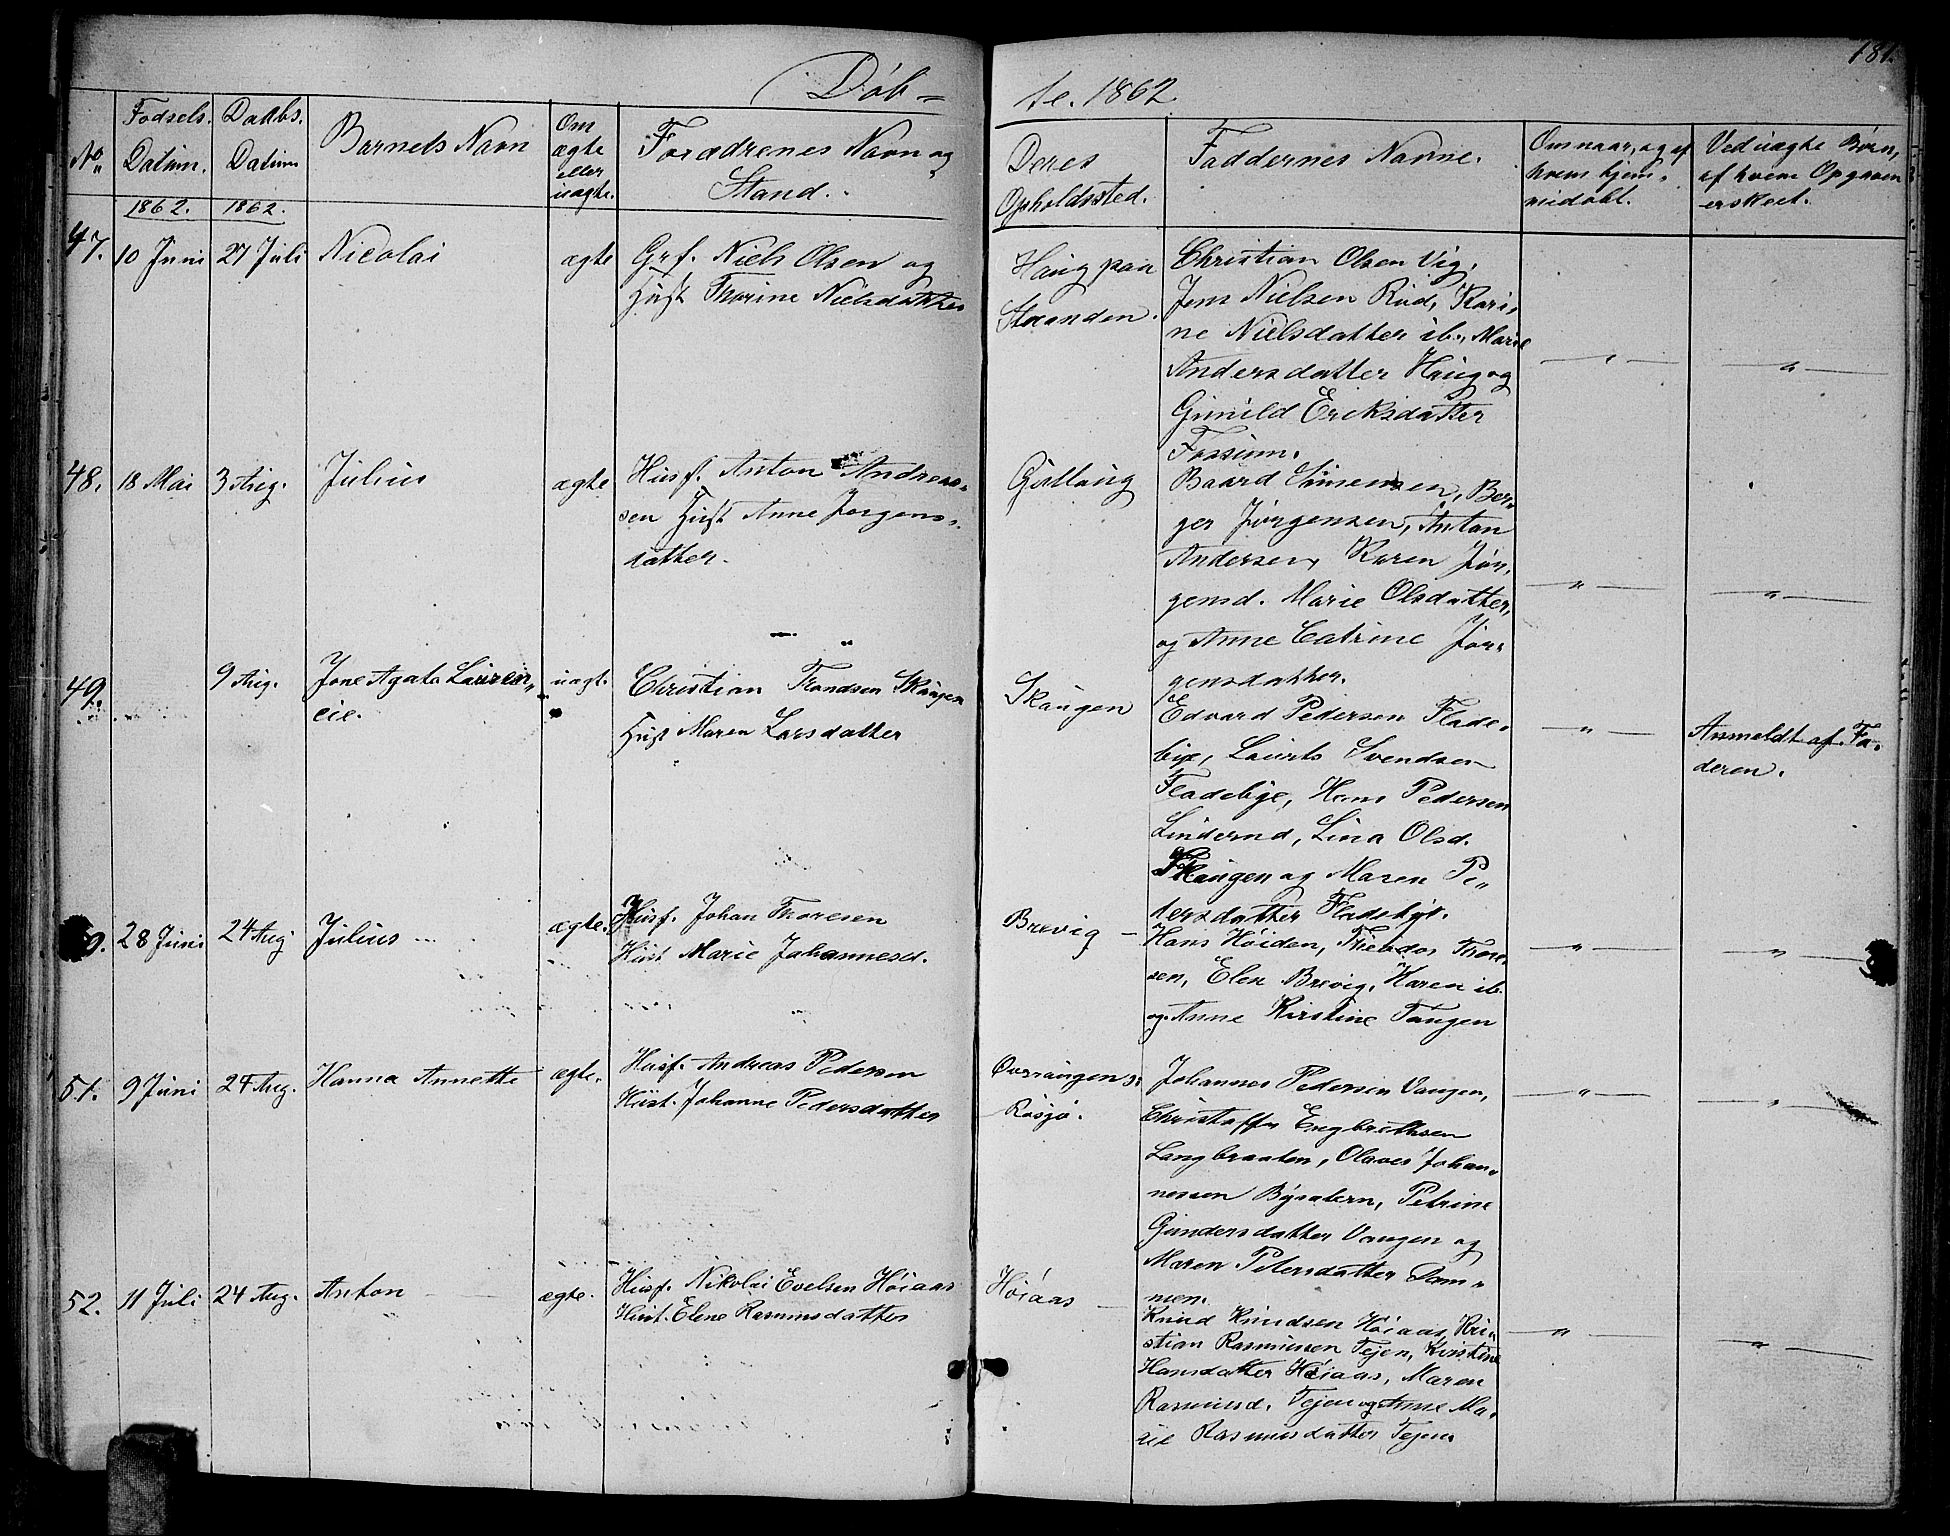 181.
Døb- te. 1862.
No. Fødsels. Datum. Daabs. Datum Barnets Navn Om ægte eller uægte. Forældrenes Navn og Stand. Deres Opholdssted. Faddernes Navne. Om naar, og af hvem hjemmedøbt. Ved uægte Børn, af hvem Opgaven er skeet.
1862. 1862.
47. 10 Juni 27 Juli Nicolai ægte Grf. Niels Olsen og
Hust Thorine Nielsdatter
Haug paa
Stranden.
Christian Olsen Vig,
Jens Nielsen Rud, Kari-
ne Nielsdatter ib., Marie
Andersdatter Haug og
Gunild Eriksdatter
Fossum.
48. 18 Mai 3 Aug. Julius ægte Husf. Anton Andreas-
sen Hust Anne Jørgens-
datter.
Gullaug
Baard Simensen, Ber-
ger Jørgensen, Anton
Andersen, Karen Jør-
gensd. Marie Olsdatter,
og Anne Catrine Jør-
gensdatter.
49. 9 Aug. uagt.
Christian Trondsen Skaugen
Hust Maren Larsdatter
Skaugen
Edvard Pedersen Flade-
bye, Laurits Svendsen
Fladebye, Hans Pedersen
Linderud, Lina Olsd.
Skaugen og Maren Pe-
dersdatter Fladebye.
Anmeldt af Fa-
deren.
28 Juni 24 Aug Julius ægte. Husf. Johan Thoresen
Hust. Marie Johannesd.
Brevig
Hans Høiden, Theodor Thore-
sen, Elen Brevig, Karen ib.
og Anne Kirstine Tangen
51. 9 Juni 24 Aug. Hanna Annette ægte. Husf. Andreas Pedersen
Hust. Johanne Pedersdatter
Johannes Pedersen Vangen,
Christoffer Engbrethsen
Langbraaten, Olaves Johan-
nessen Bysætern, Petrine
Gundersdatter Vangen og
Maren Petersdatter Dam-
men.
52. 11 Juli 24 Aug. Anton ægte. Husf. Nikolai Evelsen Høiaas
Hust. Elene Rasmusdatter
Høiaas
Knud Knudsen Høiaas, Kri-
stian Rasmussen Tejen, Kirstine
Hansdatter Høiaas, Maren
Rasmusd. Tejen og Anne Ma-
rie Rasmusdatter Tejen.